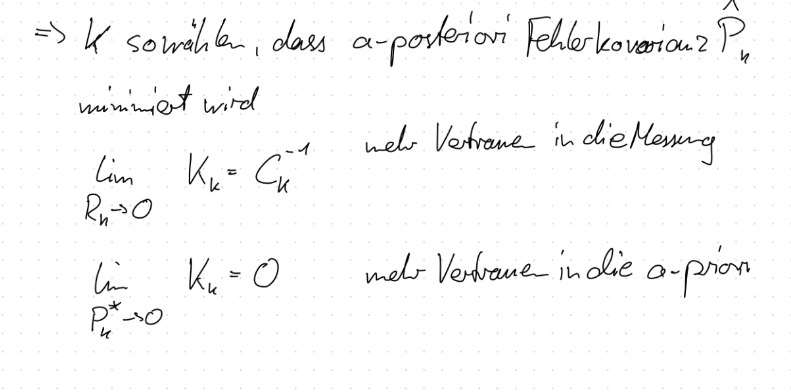 => K so wählen, dass a-posteriori Fehlerkovarianz P̂ₖ
minimiert wird
lim Kₖ = Cₖ⁻¹ mehr Vertraue in die Messung
Rₖ→0
lim Kₖ = 0 mehr Vertrauen in die a-priori
Pₖ*→0